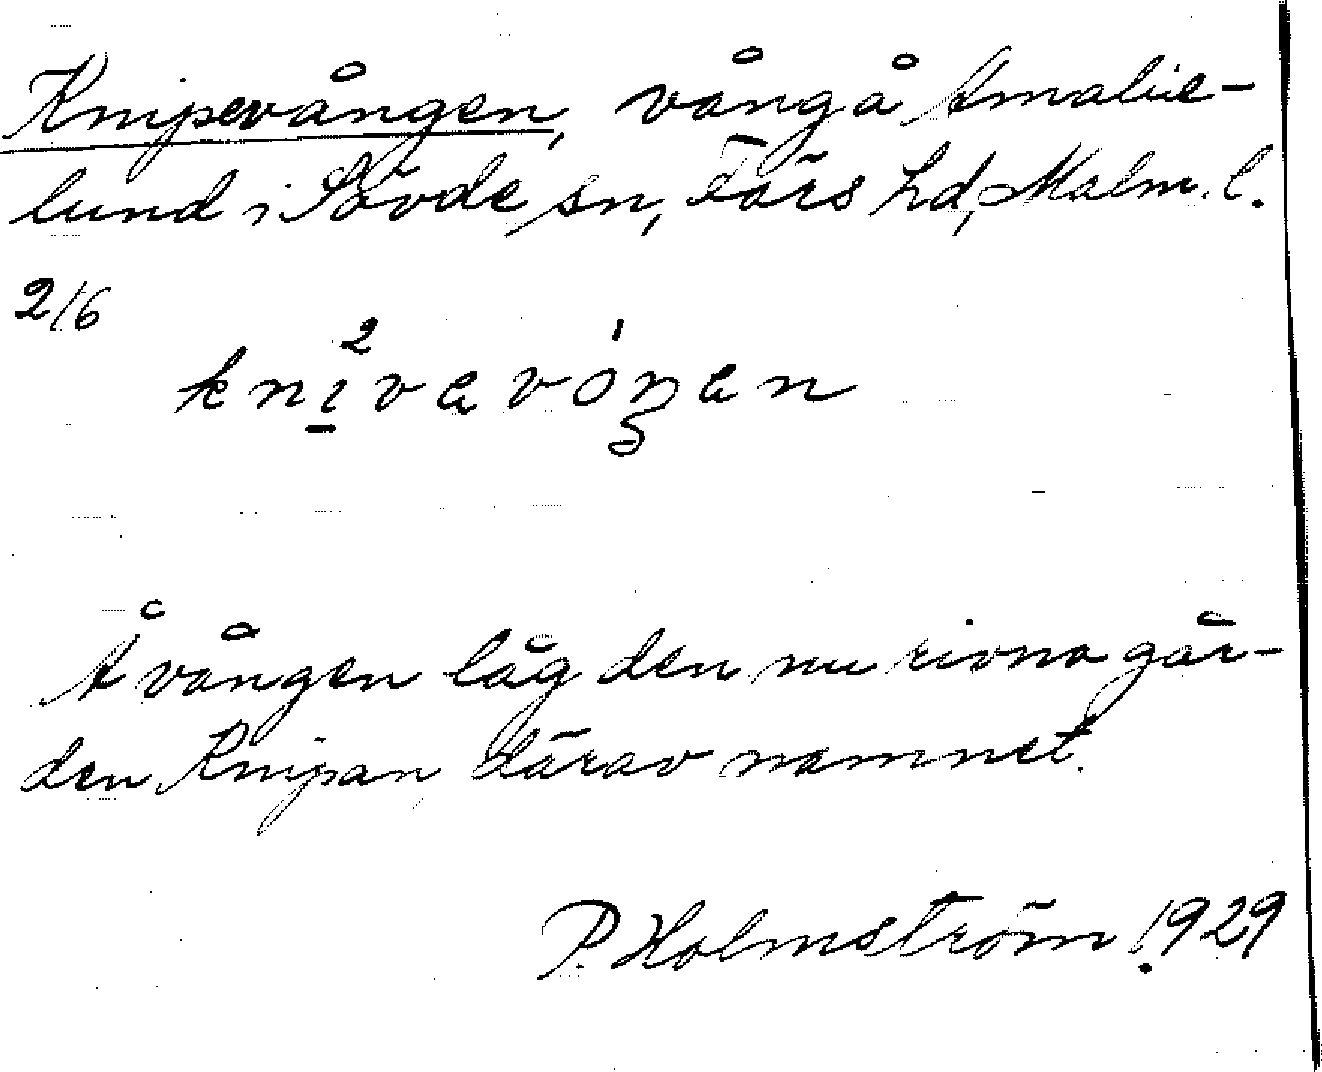 Knipevången, vång å Amalie-
lund i Sövde sn, Färs hd, Malm. l.
2/6
knivavóŋan
Å vången låg den nu rivna går-
den Knipan därav namnet.
P. Holmström 1929